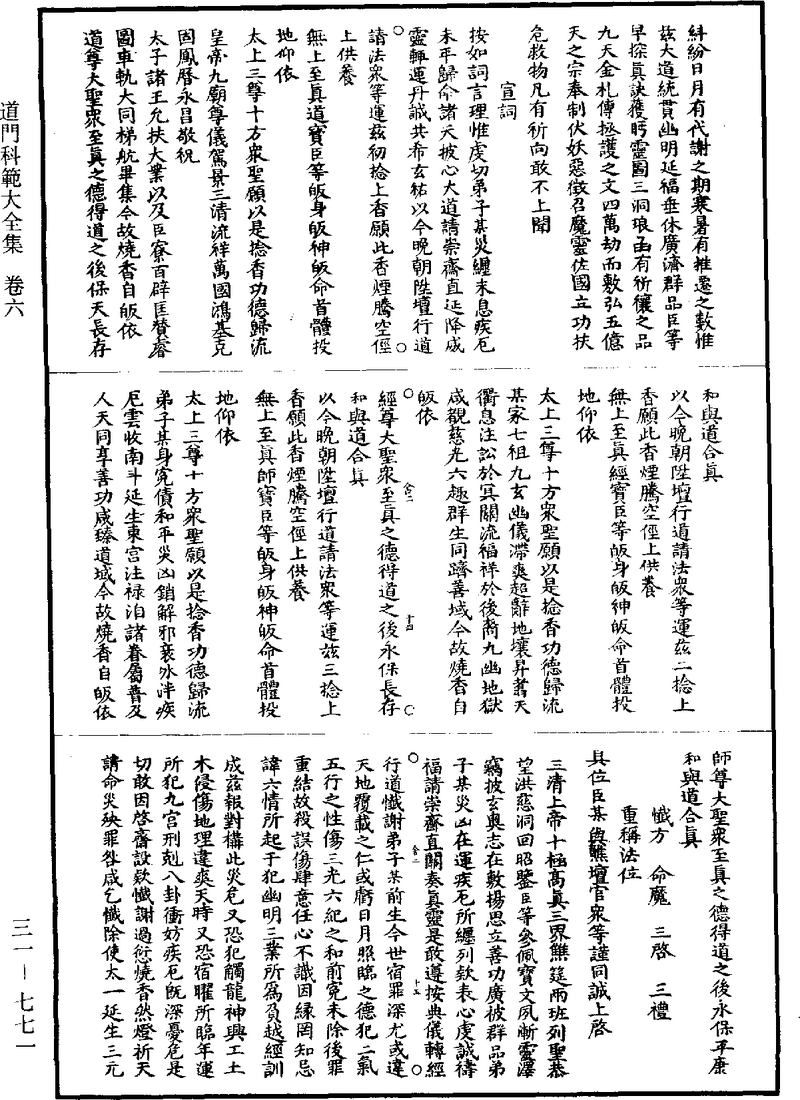 糾紛日月有代謝之期寒暑有推遷之數惟
玆大道統貫幽明延福垂休廣濟群品臣等
早探眞訣獲眄靈圖三洞琅函有祈禳之品
九天金札傳拯護之文四萬劫而敷弘五億
天之宗奉制伏妖惡徵召魔靈佐國立功扶
危救物凡有祈向敢不上聞
宣詞
按如詞言理惟虔切弟子某災纏未息疾厄
未平歸命諸天披心大道請崇齋直延降威
靈輙運丹誠共希玄祐以今晚朝陞壇行道
請法衆等運玆初捻上香願此香煙騰空徑
上供養
無上至眞道寶臣等皈身皈神皈命首體投
地仰依
太上三尊十方衆聖願以是捻香功德歸流
皇帝九廟尊儀駕景三清流祥萬國鴻基克
固鳳曆永昌敬祝
太子諸王允扶大業以及臣寮百辟匡贊睿
圖車軌大同梯航畢集今故燒香自皈依
道尊大聖衆至眞之德得道之後保天長存
和與道合眞
以今晚朝陞壇行道請法衆等運玆二捻上
香願此香煙騰空徑上供養
無上至眞經寶臣等皈身皈神皈命首體投
地仰依
太上三尊十方衆聖願以是捻香功德歸流
某家七祖九玄幽儀滯爽超辭地壤昇翥天
衢息注訟於冥關流福祥於後裔九幽地獄
咸覩慈光六趣群生同躋善域今故燒香自
皈依
經尊大聖衆至眞之德得道之後永保長存
和與道合眞
以今晚朝陞壇行道請法衆等運玆三捻上
香願此香煙騰空徑上供養
無上至眞師寶臣等皈身皈神皈命首體投
地仰依
太上三尊十方衆聖願以是捻香功德歸流
弟子某身寃債和平災凶銷解邪衰氷泮疾
厄雲收南斗延生東宮注祿洎諸眷屬普及
人天同享善功咸臻道域今故燒香自皈依
師尊大聖衆至眞之德得道之後永保平康
和與道合眞
懺方　命魔　三啓　三禮
重稱法位
具位臣某與醮壇官衆等謹同誠上啓
三清上帝十極高眞三界醮筵兩班列聖恭
望洪慈洞回昭鑒臣等參佩寶文夙漸靈澤
竊披玄奧志在敷揚思立善功廣被群品弟
子某災凶在運疾厄所纏列欵表心虔誠禱
福請崇齋直關奏眞靈是敢遵按典儀轉經
行道懺謝弟子某前生今世宿罪深尤或違
天地覆載之仁或虧日月照臨之德犯二氣
五行之性傷三光六紀之和前寃未除後罪
重結故殺誤傷肆意任心不識因緣罔知忌
諱六情所起干犯幽明三業所爲負越經訓
成玆報對構此災危又恐犯觸龍神興工土
木侵傷地理違爽天時又恐宿曜所臨年運
所犯九宮刑剋八卦衝妨疾厄旣深憂危是
切敢因啓齋設欵懺謝過愆燒香然燈祈天
請命災殃罪咎咸乞懺除使太一延生三元
道門科範大全集　卷六
三一—七七一